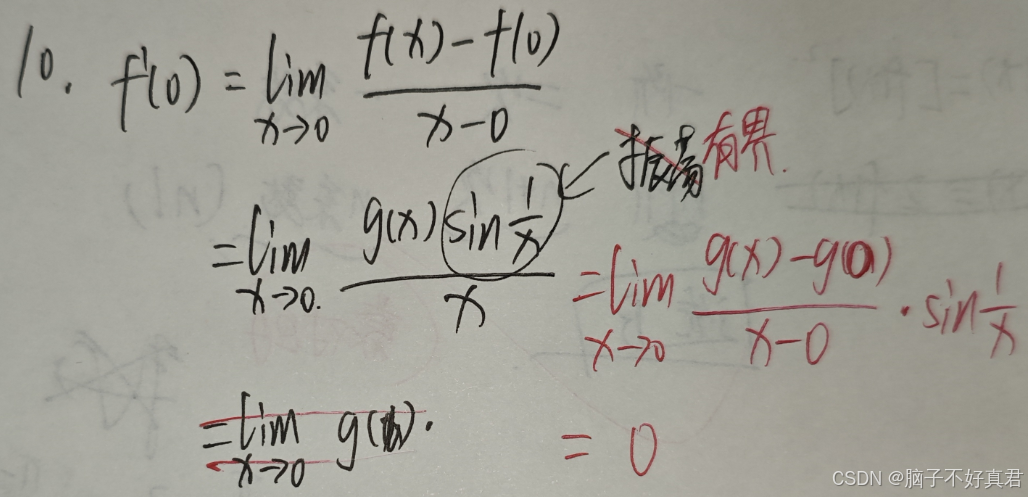 10. f'(0) = lim x→0 (f(x)-f(0))/(x-0)
振荡 有界.
= lim x→0. (g(x) sin 1/x)/x
= lim x→0 (g(x)-g(0))/(x-0) · sin 1/x
= lim x→0 g( ) ·
= 0
CSDN @脑子不好真君